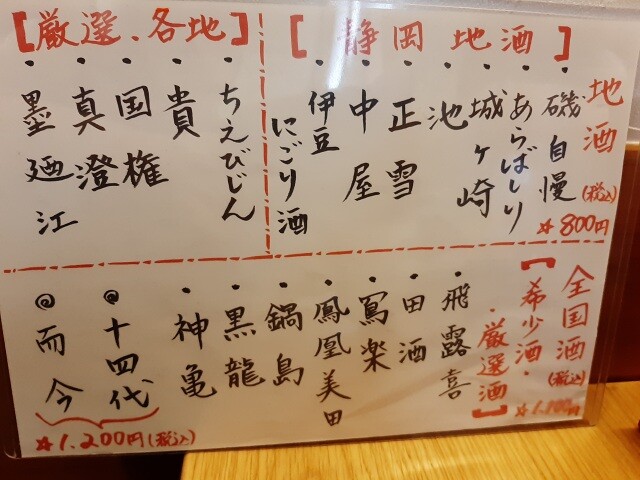 地酒
(税込)
☆800円
【静岡地酒】
・磯自慢
・あらばしり
・城ヶ崎
・池
・正雪
・中屋
・伊豆
にごり酒
【厳選、各地】
・ちえびじん
・貴
・国権
・真澄
・墨廼江
全国酒(税込)
【希少酒・
・厳選酒】
・飛露喜
・田酒
・寫楽
・鳳凰美田
・鍋島
・黒龍
・神亀
◎十四代
◎而今
☆1,200円(税込)